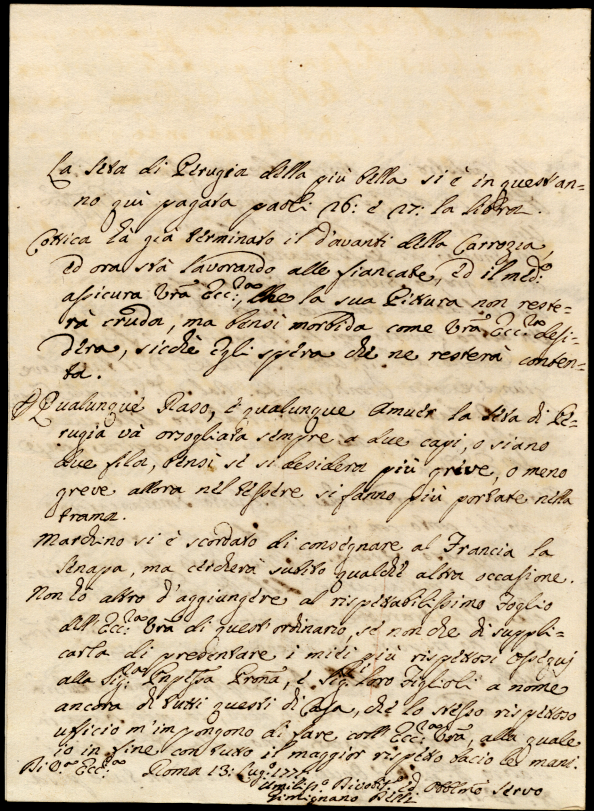 La seta di Perugia della più bella si è in quest'an=
no quì pagata paoli 26: e 27: la libra.
Cottica hà già terminato il d'avanti della Carrozza,
ed ora stà lavorando alle fiancate, ed il med.º
assicura Vrã Ecc:za, che la sua Pittura non reste=
rà cruda, ma bensì morbida come Vrã Ecc:za desi=
dera, sicchè Egli spera che ne resterà conten=
ta.
Qualunque Raso, e qualunque Amuer la seta di Pe=
rugia và orsogliata sempre a due capi, o siano
due fila, bensì se si desidera più greve, o meno
greve allora nel tessere si fanno più portate nella
trama.
Marchino si è scordato di consegnare al Francia la
senapa, ma cercherà subito qualche altra occasione.
Non hò altro d'aggiungere al rispettabilissimo foglio
dell'Ecc:za Vrã di quest'ordinario, se non che di suppli=
carla di presentare i miei più rispettosi ossequj
alla Sig:ra Pnpessa Prona, e Sig:ri loro Figlioli a nome
ancora di tutti questi di Casa, che lo stesso rispettoso
ufficio m'impongono di fare coll'Ecc:za Vrã, alla quale
io in fine con tutto il maggior rispetto bacio le mani.
Di V.ª Ecc:za Roma 13: Lug.º
Umiliss.º Divotiss.º ed Obblmo Servo
Gimignano